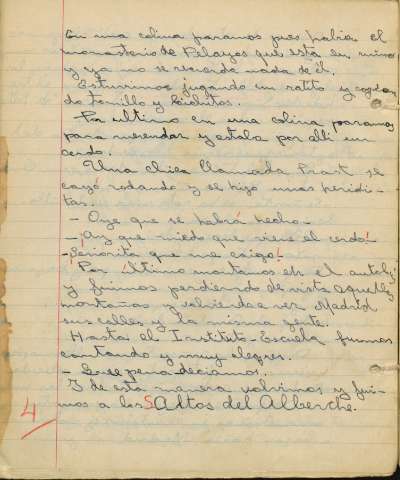 En una colina paramos pues habia el
monasterio de Pelayos que está en ruinas
y ya no se recuerda nada de él.
Estuvimos jugando un ratito y cogien
do tomillo y
-Por ultimo en una colina paramos
para merendar y estaba por alli un
cerdo.
Una chica llamada Prast se
cayó rodando y se hizo unas heridi-
tas.
- Oye que se habrá hecho -
- ¡Ay que miedo que viene el cerdo!-
-¡Señorita que me caigo!
Por último montamos en el autobús
y fuimos perdiendo de vista aquellas
montañas y volviendo a ver Madrid
sus calles y la misma gente.
Hasta el Instituto-Escuela fuimos
cantando y muy alegres.
- Que pena deciamos.
Y de esta manera volvimos y fui-
mos a los Saltos del Alberche.
4